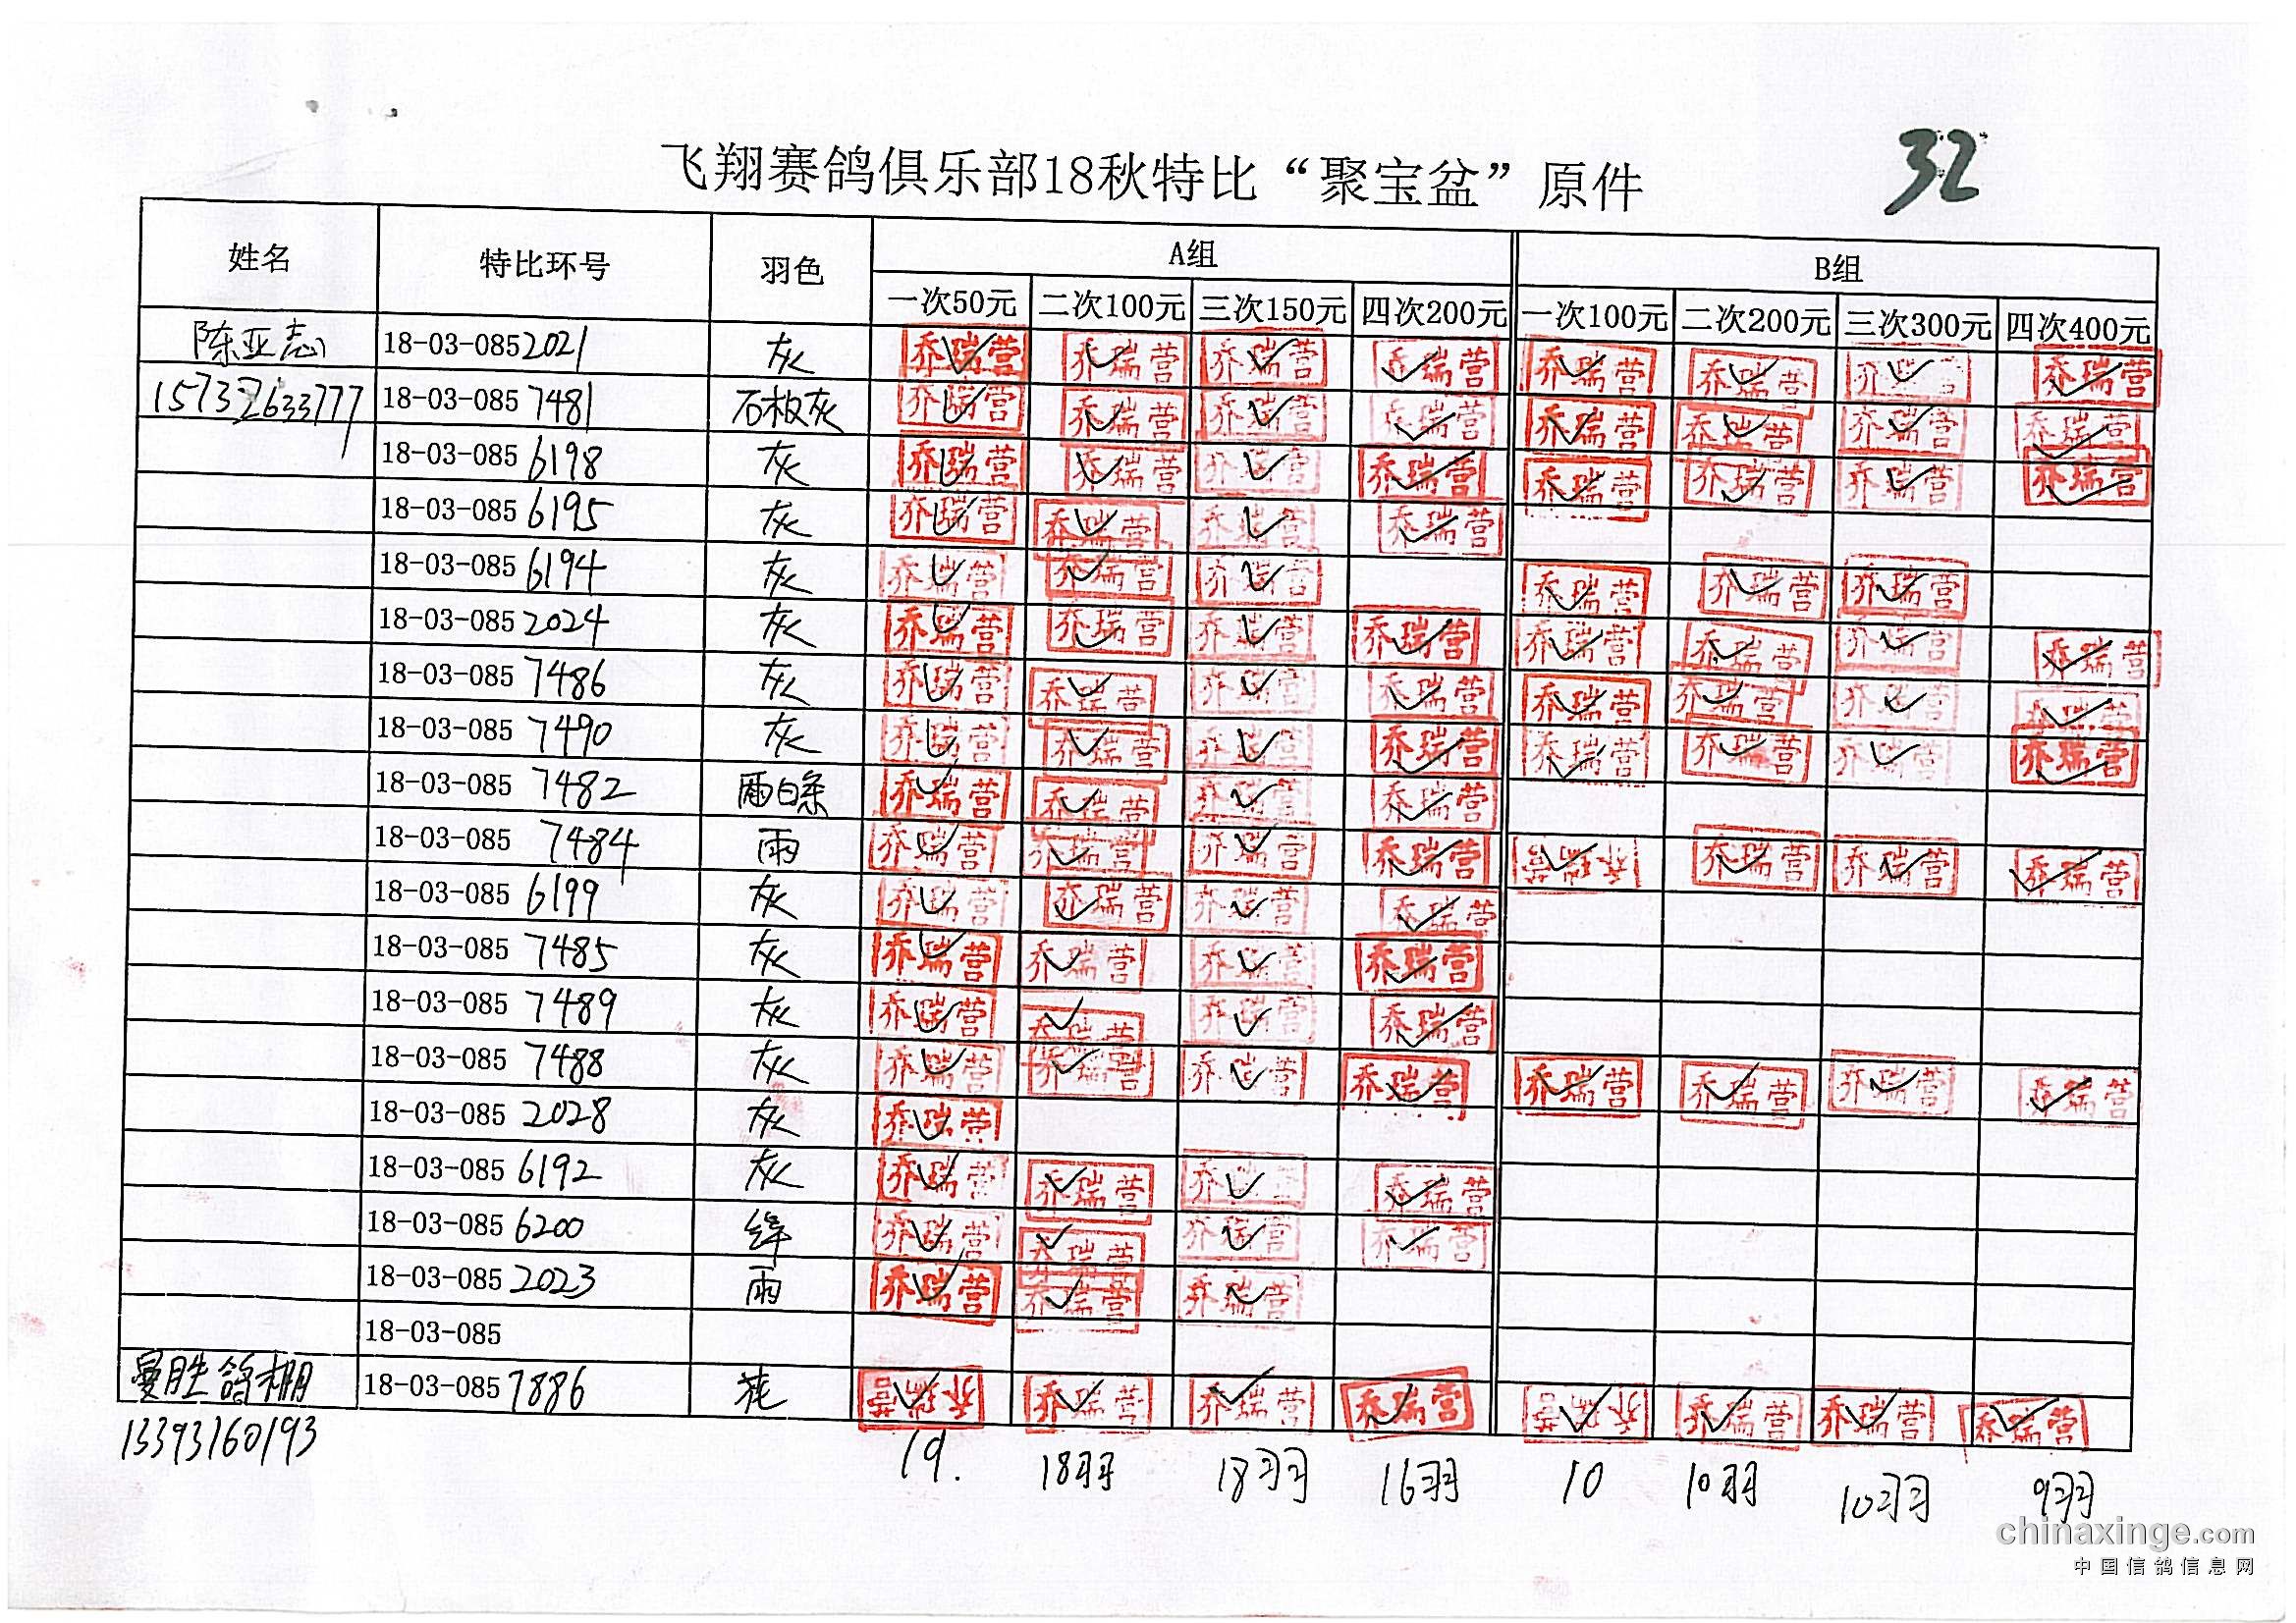 32
飞翔赛鸽俱乐部18秋特比“聚宝盆”原件
姓名 特比环号 羽色 A组 B组
一次50元 二次100元 三次150元 四次200元 一次100元 二次200元 三次300元 四次400元
陈亚志 18-03-085 2021 灰 乔瑞营 乔瑞营 乔瑞营 乔瑞营 乔瑞营 乔瑞营 乔瑞营 乔瑞营
15732633777 18-03-085 7481 石板灰 乔瑞营 乔瑞营 乔瑞营 乔瑞营 乔瑞营 乔瑞营 乔瑞营 乔瑞营
18-03-085 6198 灰 乔瑞营 乔瑞营 乔瑞营 乔瑞营 乔瑞营 乔瑞营 乔瑞营 乔瑞营
18-03-085 6195 灰 乔瑞营 乔瑞营 乔瑞营 乔瑞营
18-03-085 6194 灰 乔瑞营 乔瑞营 乔瑞营 乔瑞营 乔瑞营 乔瑞营
18-03-085 2024 灰 乔瑞营 乔瑞营 乔瑞营 乔瑞营 乔瑞营 乔瑞营 乔瑞营 乔瑞营
18-03-085 7486 灰 乔瑞营 乔瑞营 乔瑞营 乔瑞营 乔瑞营 乔瑞营 乔瑞营 乔瑞营
18-03-085 7490 灰 乔瑞营 乔瑞营 乔瑞营 乔瑞营 乔瑞营 乔瑞营 乔瑞营 乔瑞营
18-03-085 7482 雨白条 乔瑞营 乔瑞营 乔瑞营 乔瑞营
18-03-085 7484 雨 乔瑞营 乔瑞营 乔瑞营 乔瑞营 乔瑞营 乔瑞营 乔瑞营 乔瑞营
18-03-085 6199 灰 乔瑞营 乔瑞营 乔瑞营 乔瑞营
18-03-085 7485 灰 乔瑞营 乔瑞营 乔瑞营 乔瑞营
18-03-085 7489 灰 乔瑞营 乔瑞营 乔瑞营 乔瑞营
18-03-085 7488 灰 乔瑞营 乔瑞营 乔瑞营 乔瑞营 乔瑞营 乔瑞营 乔瑞营 乔瑞营
18-03-085 2028 灰 乔瑞营
18-03-085 6192 灰 乔瑞营 乔瑞营 乔瑞营 乔瑞营
18-03-085 6200 绛 乔瑞营 乔瑞营 乔瑞营 乔瑞营
18-03-085 2023 雨 乔瑞营 乔瑞营 乔瑞营
18-03-085
胜鸽棚 18-03-085 7886 花 乔瑞营 乔瑞营 乔瑞营 乔瑞营 乔瑞营 乔瑞营 乔瑞营 乔瑞营
13393160193
19. 18羽 18羽 16羽 10 10羽 10羽 9羽
chinaxinge.com
中国信鸽信息网